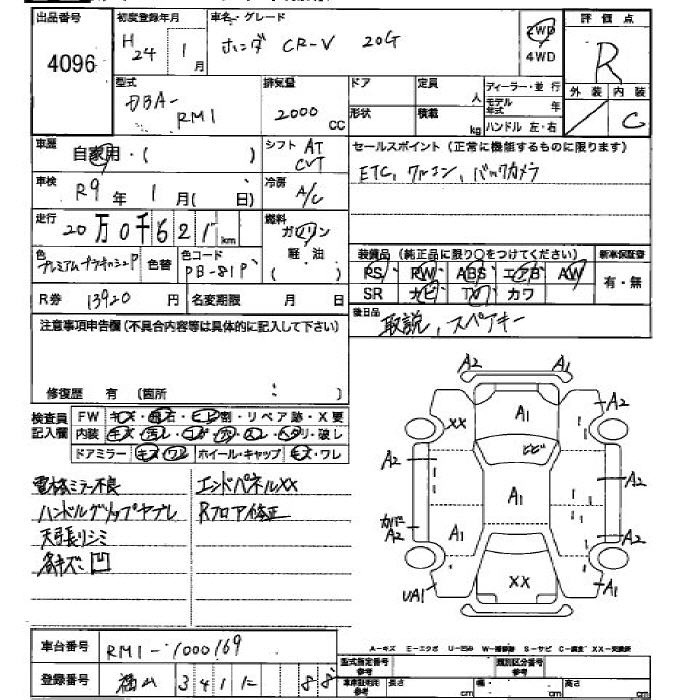 出品番号 初度登録年月 車名・グレード 評価点
4096 H24 1月 ホンダ CR-V 20G 2WD 4WD R
型式 排気量 ドア 定員 人 ディーラー・並行 外装 内装
DBA-RM1 2000CC 形状 積載 kg モデル年式 年 ハンドル 左・右 C
車歴 自家用・( ) シフト AT CVT セールスポイント(正常に機能するものに限ります)
車検 R9年 1月( 日) 冷房 A/C ETC, ワルコン, バックカメラ
走行 20万0千621km 燃料 ガソリン 軽油 ( )
装装品(純正品に限り○をつけてください) 新車保証書
色 色替 色コード PB-81P PS・RW・ABS・エアB・AW 有・無
SR ナビ TV カワ
R券 13920円 名変期限 月 日
後日品 取説, スペアキー
注意事項申告欄(不具合内容等は具体的に記入して下さい)
修復歴 有 (箇所 : )
検査員記入欄 FW キズ・飛石・ヒビ割・リペア跡・X要
内装 キズ・汚レ・コゲ・穴・スレ・ヘタリ・破レ
ドアミラー キズ・ワレ ホイール・キャップ キズ・ワレ
電格ミラー不良 エンドパネルXX
ハンドルグリップヤブレ Rフロア修正
天張リシミ
各キズ凹
A2 A1
XX A1 A2
ヒビ
A2 A1 A2
カバー A2 A1 A2
UA1 XX A1
A-キズ E-エクボ U-凹み W-補修跡 S-サビ C-腐食 XX-交換済
車台番号 RM1-1000169
型式指定番号 参考 類別区分番号 参考
登録番号 福山 341 に 88
車庫証明用 参考 長さ cm 幅 cm 高さ cm